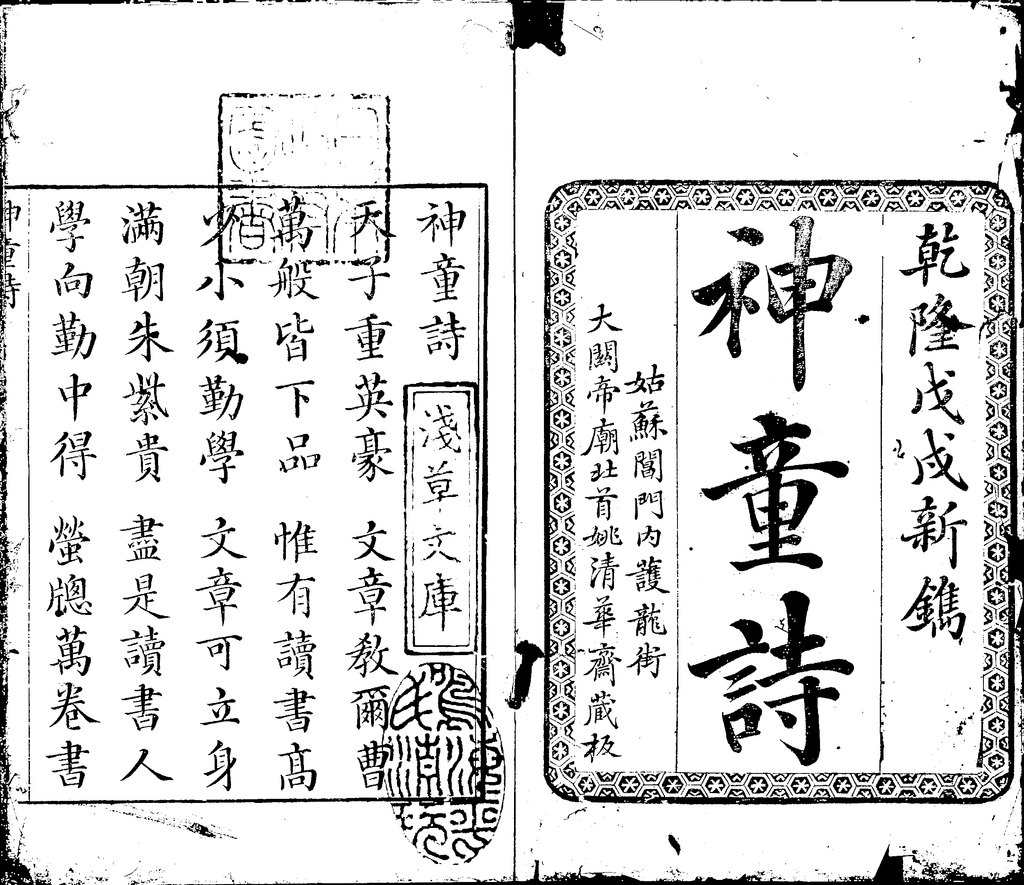 乾隆戊戌新鐫
神童詩
姑蘇閶門內護龍街
大關帝廟北首姚清華齋藏板
神童詩
淺草文庫
天子重英豪 文章教爾曹
萬般皆下品 惟有讀書高
少小須勤學 文章可立身
滿朝朱紫貴 盡是讀書人
學向勤中得 螢牎萬卷書
神童詩